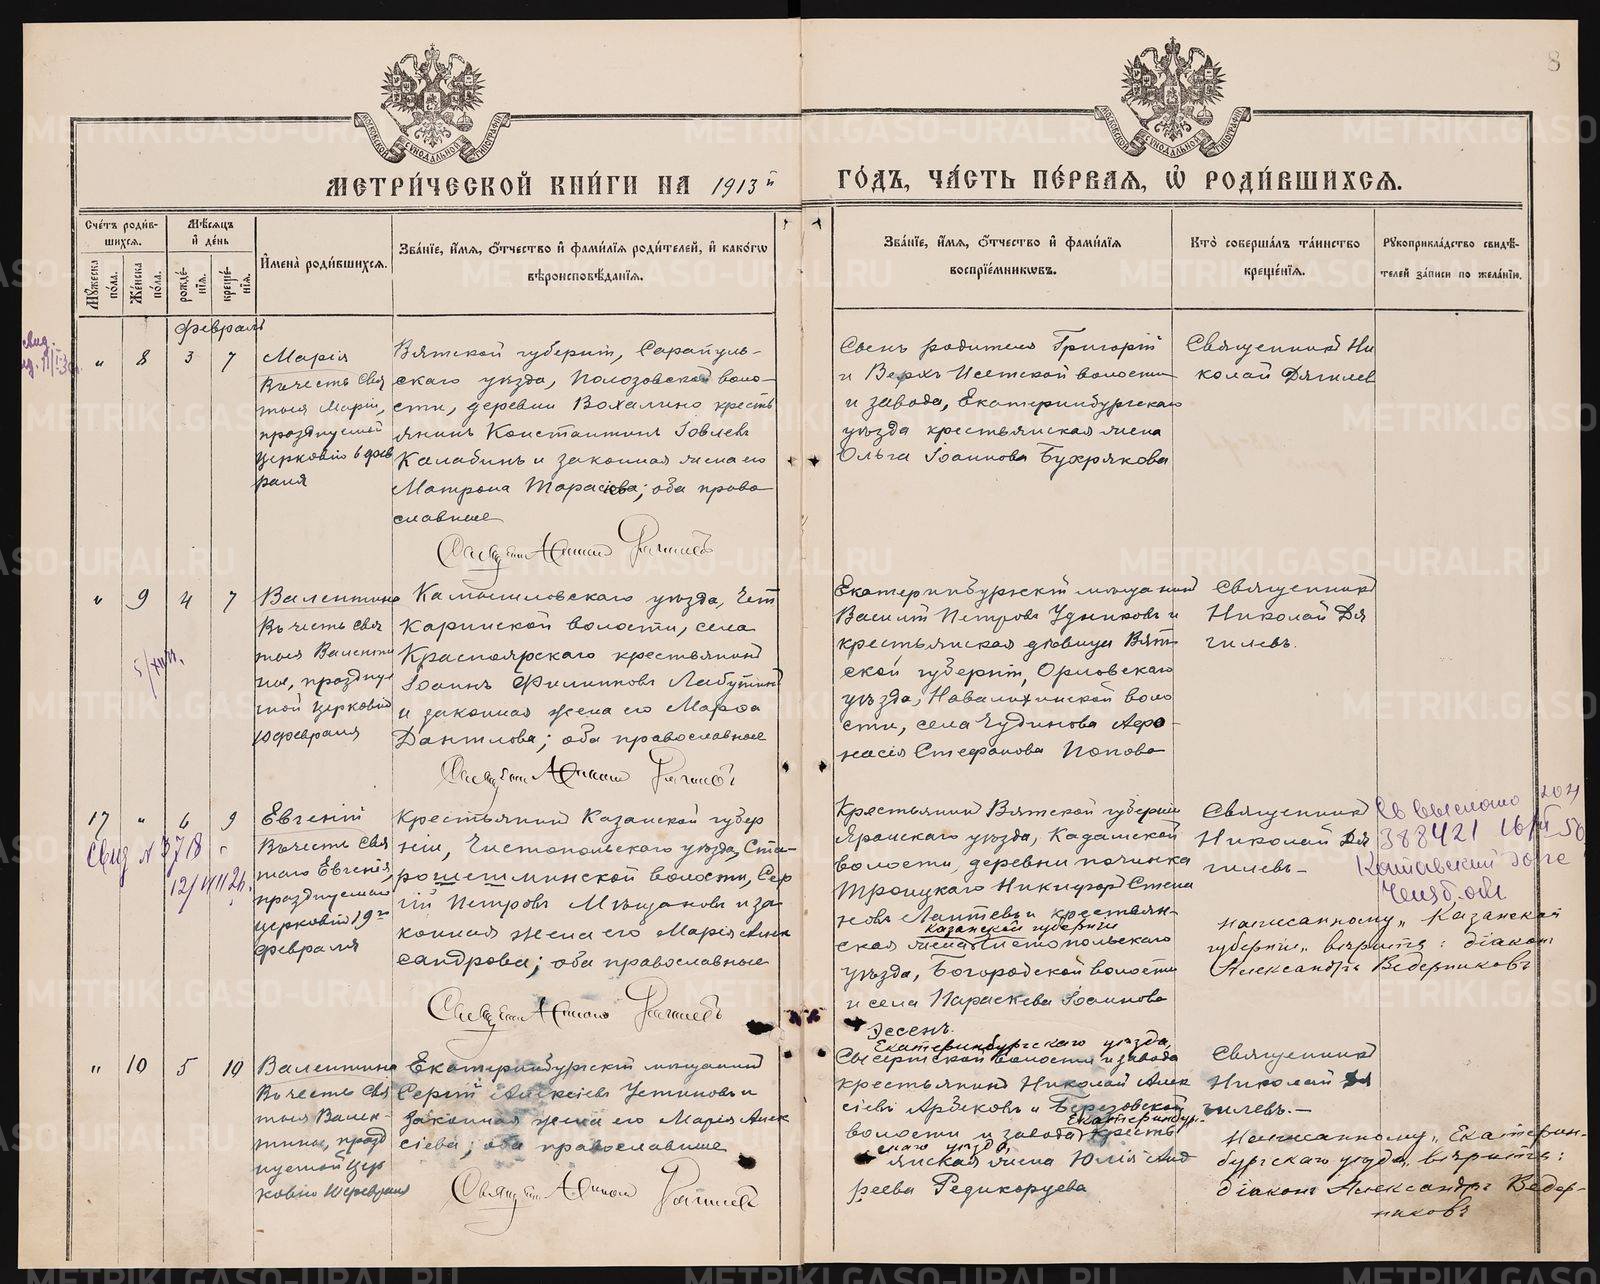 8
МОСКОВСКОЙ СУНОДАЛЬНОЙ ТИПОГРАФІИ
МОСКОВСКОЙ СУНОДАЛЬНОЙ ТИПОГРАФІИ
МЕТРИ́ЧЕСКОЙ КНИ́ГИ НА 1913й
ГО́ДЪ, ЧА́СТЬ ПЕ́РВАЯ, Ѡ РОДИ́ВШИХСЯ.
Сче́тъ роди́в-
шихся.
Мꙋ́жеска
по́ла.
Же́нска
по́ла.
Мѣ́сяцъ
и҆ де́нь
рожде́-
нїя.
креще́-
нїя.
И҆мена̀ роди́вшихся.
Зва́нїе, и҆́мя, ѻ҆́тчество и҆ фами́лїя роди́телей, и҆ како́гѡ
вѣроисповѣ́данїя.
Зва́нїе, и҆́мя, ѻ҆́тчество и҆ фами́лїя
воспрїе́мникѡвъ.
Кто̀ соверша́лъ та́инство
креще́нїя.
Рꙋкоприкла́дство свидѣ́-
телей за́писи по жела́нїю.
Февраль
" 8 3 7
Марія
Въ честь Свя
тыя Маріи,
празднуемой
церковію 6 фев
раля
Вятской губерніи, Сарапуль-
скаго уѣзда, Полозовской воло-
сти, деревни Вохалино кресть
янинъ Константинъ Іовлевъ
Калабинъ и законная жена его
Матрона Тарасіева; оба право
славные
Сынъ родителя Григорій
и Верхъ Исетской волости
и завода, Екатеринбургскаго
уѣзда крестьянская жена
Ольга Іоаннова Бухрякова
Священникъ Ни
колай Дягилев
" 9 4 7
Валентина
Въ честь Свя
тыя Валенти
ны, праздну
емой церковію
10 февраля
Камышловскаго уѣзда, Чет
каринской волости, села
Красноярскаго крестьянинъ
Іоаннъ Филиповъ Лабутинъ
и законная жена его Марфа
Даніилова; оба православные
Екатеринбургскій мѣщанинъ
Василій Петровъ Удниковъ и
крестьянская дѣвица Вят-
ской губерніи, Орловскаго
уѣзда, Навалихинской воло
сти, села Чудинова Афо-
насія Стефанова Попова
Священникъ
Николай Дя
гилевъ.
17 " 6 9
Свид № 3718
Евгеній
Въ честь Свя
таго Евгенія,
празднуемаго
церковію 19го
февраля
Крестьянинъ Казанской губер
ніи, Чистопольскаго уѣзда, Ста-
рошешминской волости, Сер
гій Петровъ Мѣщановъ и за-
конная жена его Марія Алек
сандрова; оба православные
Крестьянинъ Вятской губерніи
Яранскаго уѣзда, Кадамской
волости, деревни починка
Троицкаго Никифоръ Степа
новъ Лаптевъ и крестьян-
Казанской губерніи
ская жена Чистопольскаго
уѣзда, Богородской волости
и села Параскева Іоаннова
Есенъ.
Священникъ
Николай Дя
гилевъ –
388421
написанному „Казанской
губерніи„ вѣрить: діаконъ
Александръ Ведерниковъ
" 10 5 10
Валентина
Въ честь Свя
тыя Вален-
тины, празд
нуемой цер
ковію 10 февраля
Екатеринбургскій мѣщанинъ
Сергій Алексіевъ Устиновъ и
законная жена его Марія Алек
сіева; оба православные
Екатеринбургскаго уѣзда,
Сысертской волости и завода
крестьянинъ Николай Алек
сіевъ и Березовской
Екатеринбур-
волости и завода кресть
скаго уѣзда,
янская жена Юлія Анд
реева Редикорцева
Священникъ
Николай Дя
гилевъ. –
Написанному „Екатерин-
бургскаго уѣзда„ вѣрить:
діаконъ Александръ Ведер-
никовъ
METRIKI.GASO-URAL.RU